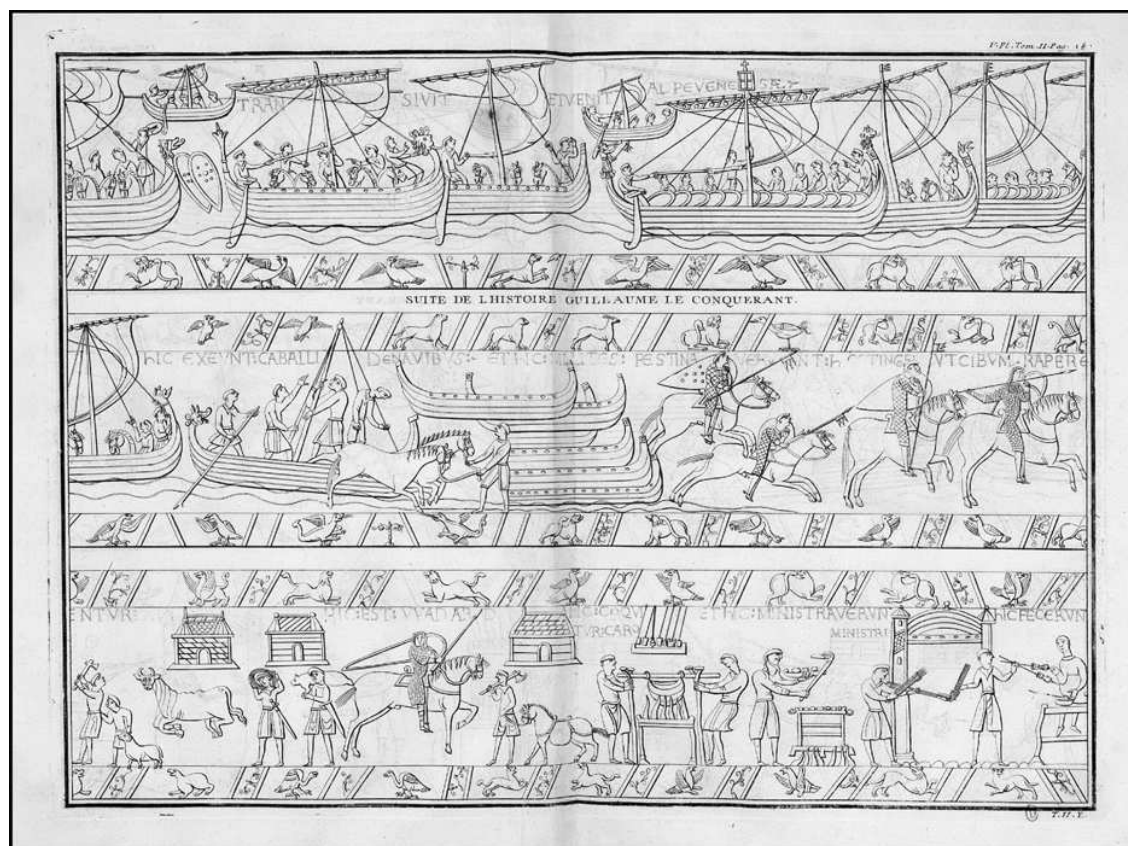 V. Pl. Tom II. Pag. 18.
TRAN SIVIT ET VENIT AL PEVENESÆ
SUITE DE L HISTOIRE GUILLAUME LE CONQUERANT.
HIC EXEVNT CABALLI DE NAVIBVS: ET HIC MILITES: FESTINA VERVNT: H TINGE VT CIBVM RAPERE
ENTVR HIC: EST: VVADARD HIC COQV ET HIC: MINISTRAVERVN HIC FECERVN
TVR CARO
MINISTRI
T. II. E.